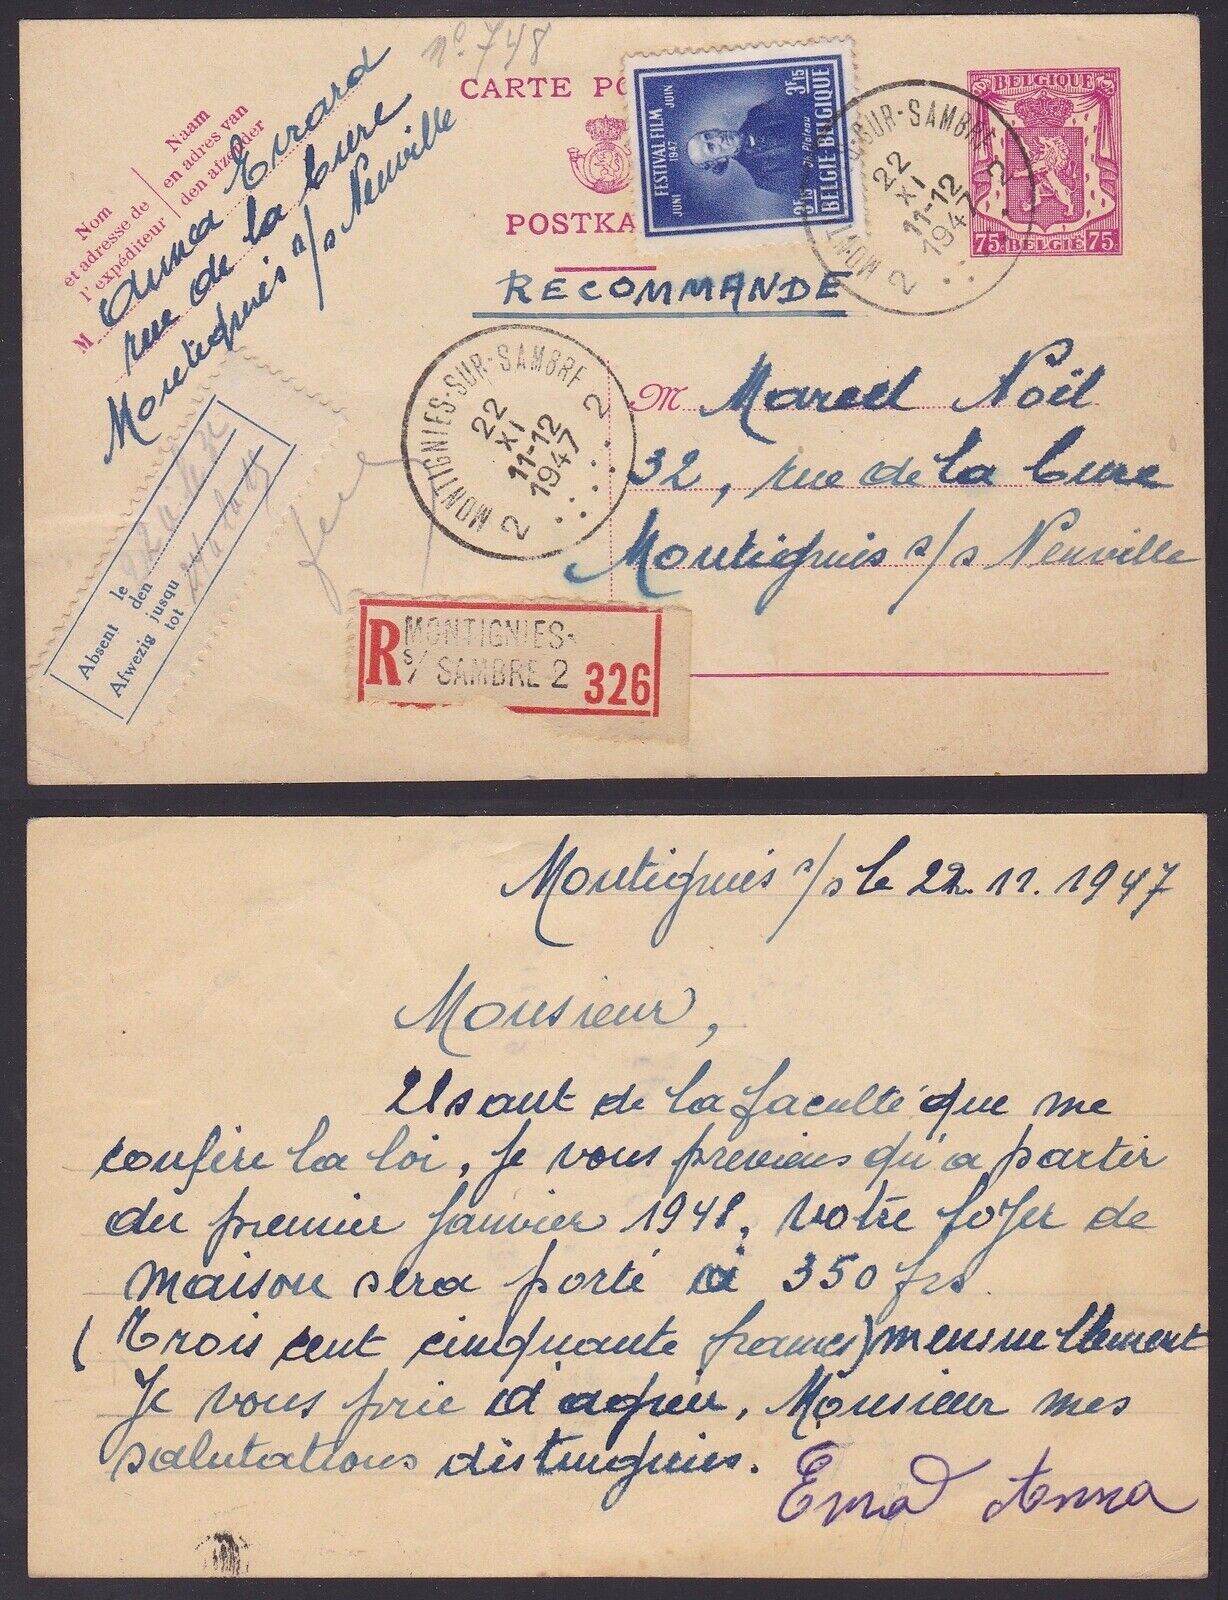 nº 748
CARTE PO
POSTKA
Nom
et adresse de
l'expéditeur
Naam
en adres van
den afzender
M Anna Evrard
rue de la Cure
Montignies s/s Neuville
FESTIVAL FILM
JUNI 1947 JUIN
Jh. Plateau
3F15 3F15
BELGIE-BELGIQUE
-SUR-SAMBRE 2
MONT
22
XI
11-12
1947
2
BELGIQUE
75c BELGIE 75c
RECOMMANDE
MONTIGNIES-SUR-SAMBRE 2
22
XI
11-12
1947
2
M Marcel Noël
32, rue de la Cure
Montignies s/s Neuville
Absent le
Afwezig den
jusqu
tot
R MONTIGNIES-
s/ SAMBRE 2 326
Montignies s/s le 22.11.1947
Monsieur,
Usant de la faculté que me
confère la loi, je vous previens qu'a partir
du premier Janvier 1948, votre loyer de
maison sera porté a 350 frs
(Trois cent cinquante francs) mensuellement
Je vous prie d'agréer, Monsieur mes
salutations distinguées.
Evrard Anna